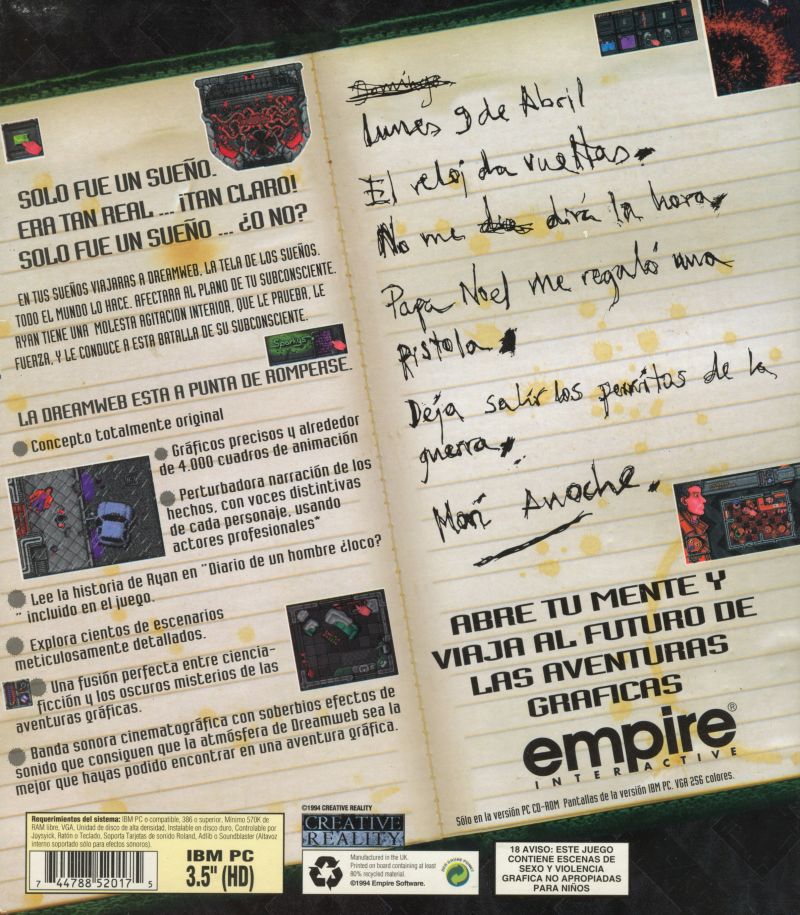 SOLO FUE UN SUEÑO.
ERA TAN REAL ... ¡TAN CLARO!
SOLO FUE UN SUEÑO ... ¿O NO?
EN TUS SUEÑOS VIAJARAS A DREAMWEB, LA TELA DE LOS SUEÑOS.
TODO EL MUNDO LO HACE. AFECTARA AL PLANO DE TU SUBCONSCIENTE.
RYAN TIENE UNA MOLESTA AGITACION INTERIOR, QUE LE PRUEBA, LE
FUERZA, Y LE CONDUCE A ESTA BATALLA DE SU SUBCONSCIENTE.
Sparkys
LA DREAMWEB ESTA A PUNTA DE ROMPERSE.
Concepto totalmente original
Gráficos precisos y alrededor
de 4.000 cuadros de animación
Perturbadora narración de los
hechos, con voces distintivas
de cada personaje, usando
actores profesionales*
Lee la historia de Ryan en "Diario de un hombre ¿loco?
" incluido en el juego.
Explora cientos de escenarios
meticulosamente detallados.
Una fusión perfecta entre ciencia-
ficción y los oscuros misterios de las
aventuras gráficas.
Banda sonora cinematográfica con soberbios efectos de
sonido que consiguen que la atmósfera de Dreamweb sea la
mejor que hayas podido encontrar en una aventura gráfica.
Domingo
Lunes 9 de Abril
El reloj da vueltas.
No me dirá la hora.
Papa Noel me regaló una
pistola.
Deja salir los perritos de la
guerra.
Morí Anoche.
ABRE TU MENTE Y
VIAJA AL FUTURO DE
LAS AVENTURAS
GRAFICAS
empire®
INTERACTIVE
Sólo en la versión PC CD-ROM. Pantallas de la versión IBM PC. VGA 256 colores.
Requerimientos del sistema: IBM PC o compatible, 386 o superior, Mínimo 570K de
RAM libre, VGA, Unidad de disco de alta densidad, Instalable en disco duro, Controlable por
Joysyick, Ratón o Teclado, Soporta Tarjetas de sonido Roland, Adlib o Soundblaster (Altavoz
interno soportado sólo para efectos sonoros).
7 44788 52017 5
IBM PC
3.5" (HD)
©1994 CREATIVE REALITY
CREATIVE
REALITY
Manufactured in the UK.
Printed on board containing at least
80% recycled material.
©1994 Empire Software.
18 AVISO: ESTE JUEGO
CONTIENE ESCENAS DE
SEXO Y VIOLENCIA
GRAFICA NO APROPIADAS
PARA NIÑOS